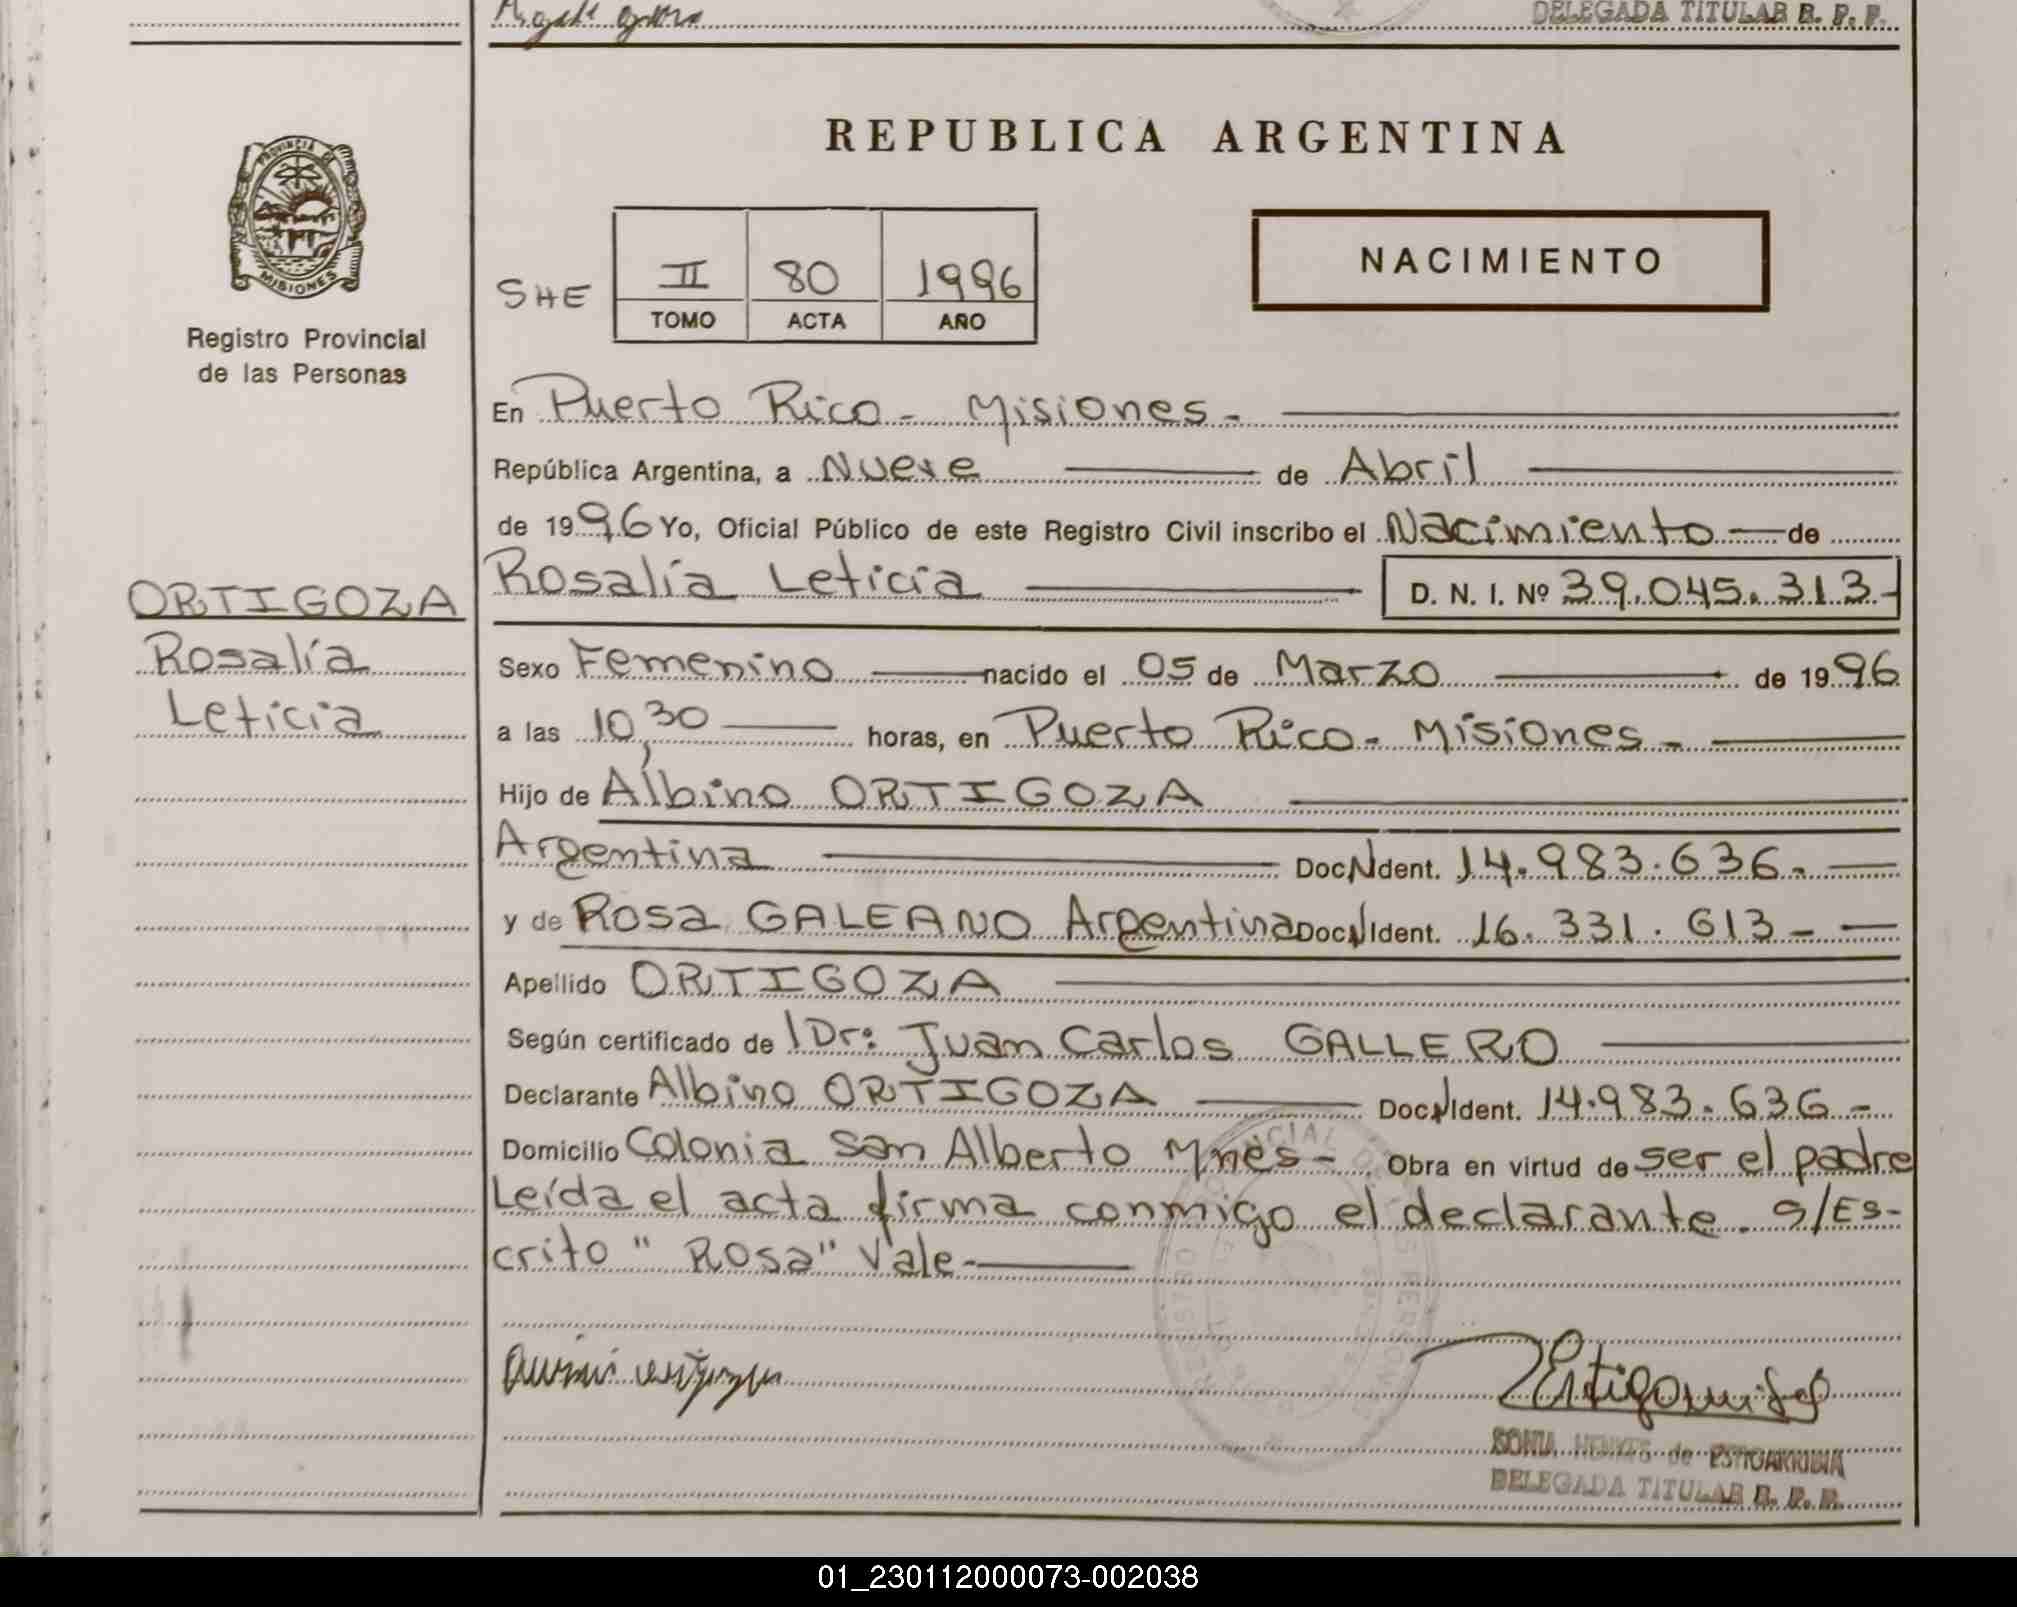 DELEGADA TITULAR R. P. P.
REPUBLICA ARGENTINA
PROVINCIA DE
MISIONES
Registro Provincial
de las Personas
SHE
II
80
1996
TOMO
ACTA
AÑO
NACIMIENTO
En Puerto Rico - Misiones -
República Argentina, a Nueve de Abril
de 1996 Yo, Oficial Público de este Registro Civil inscribo el Nacimiento de
Rosalía Leticia D. N. I. Nº 39.045.313-
ORTIGOZA
Rosalía
Leticia
Sexo Femenino nacido el 05 de Marzo de 1996
a las 10,30 horas, en Puerto Rico - Misiones -
Hijo de Albino ORTIGOZA
Argentina Doc N Ident. 14.983.636.-
y de Rosa GALEANO Argentina Doc N Ident. 16.331.613-
Apellido ORTIGOZA
Según certificado de l Dr: Juan Carlos GALLERO
Declarante Albino ORTIGOZA Doc N Ident. 14.983.636-
Domicilio Colonia San Alberto Mnes - Obra en virtud de ser el padre
Leída el acta firma conmigo el declarante. S/Es-
crito "Rosa" Vale-
SONIA HENKES de ESTIGARRIBIA
DELEGADA TITULAR R. P. P.
01_230112000073-002038